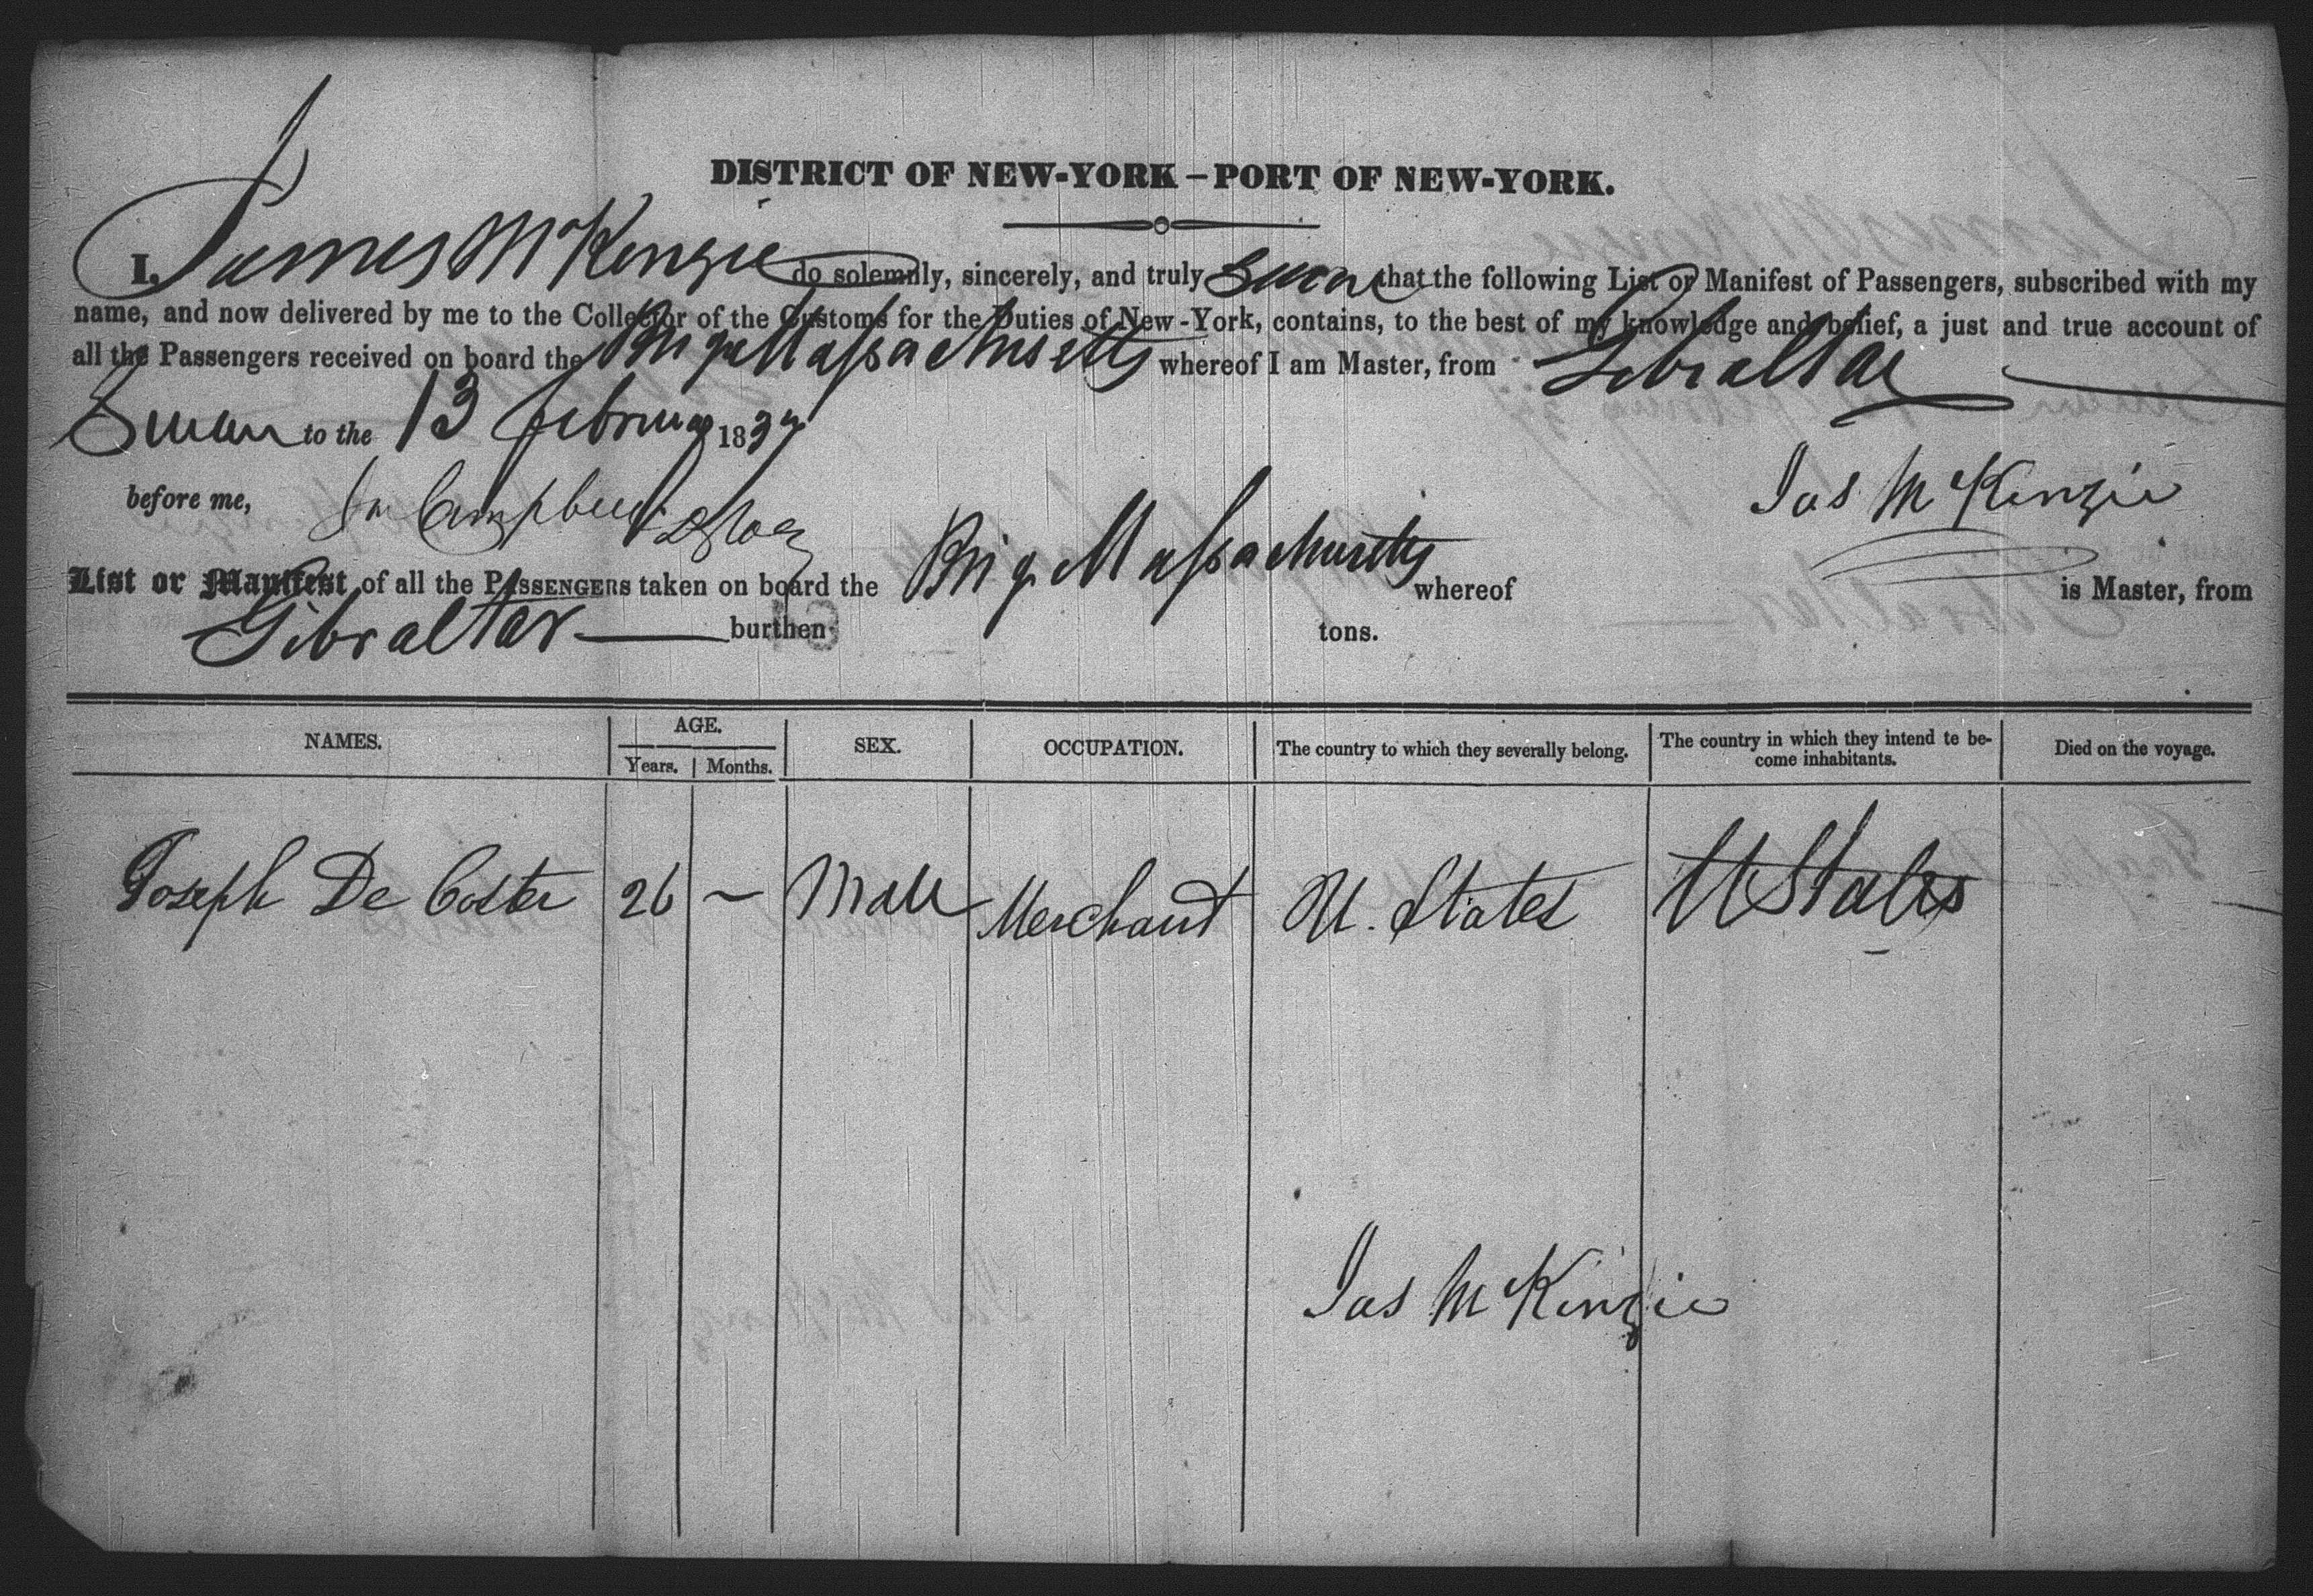 DISTRICT OF NEW-YORK – PORT OF NEW-YORK.
I, James McKenzie do solemnly, sincerely, and truly swear that the following List or Manifest of Passengers, subscribed with my
name, and now delivered by me to the Collector of the Customs for the Duties of New-York, contains, to the best of my knowledge and belief, a just and true account of
all the Passengers received on board the Brig Massachusetts whereof I am Master, from Gibraltar
Sworn to the 13 February 1837
before me, Campbell Jas McKenzie
List or Manifest of all the PASSENGERS taken on board the Brig Massachusetts whereof is Master, from
Gibraltar burthen tons.
NAMES. AGE. Years. Months. SEX. OCCUPATION. The country to which they severally belong. The country in which they intend te be-
come inhabitants. Died on the voyage.
Joseph De Coster 26 – Male Merchant U. States U States
Jas McKenzie